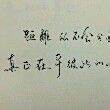 距離 从不会分
真正在乎彼此的